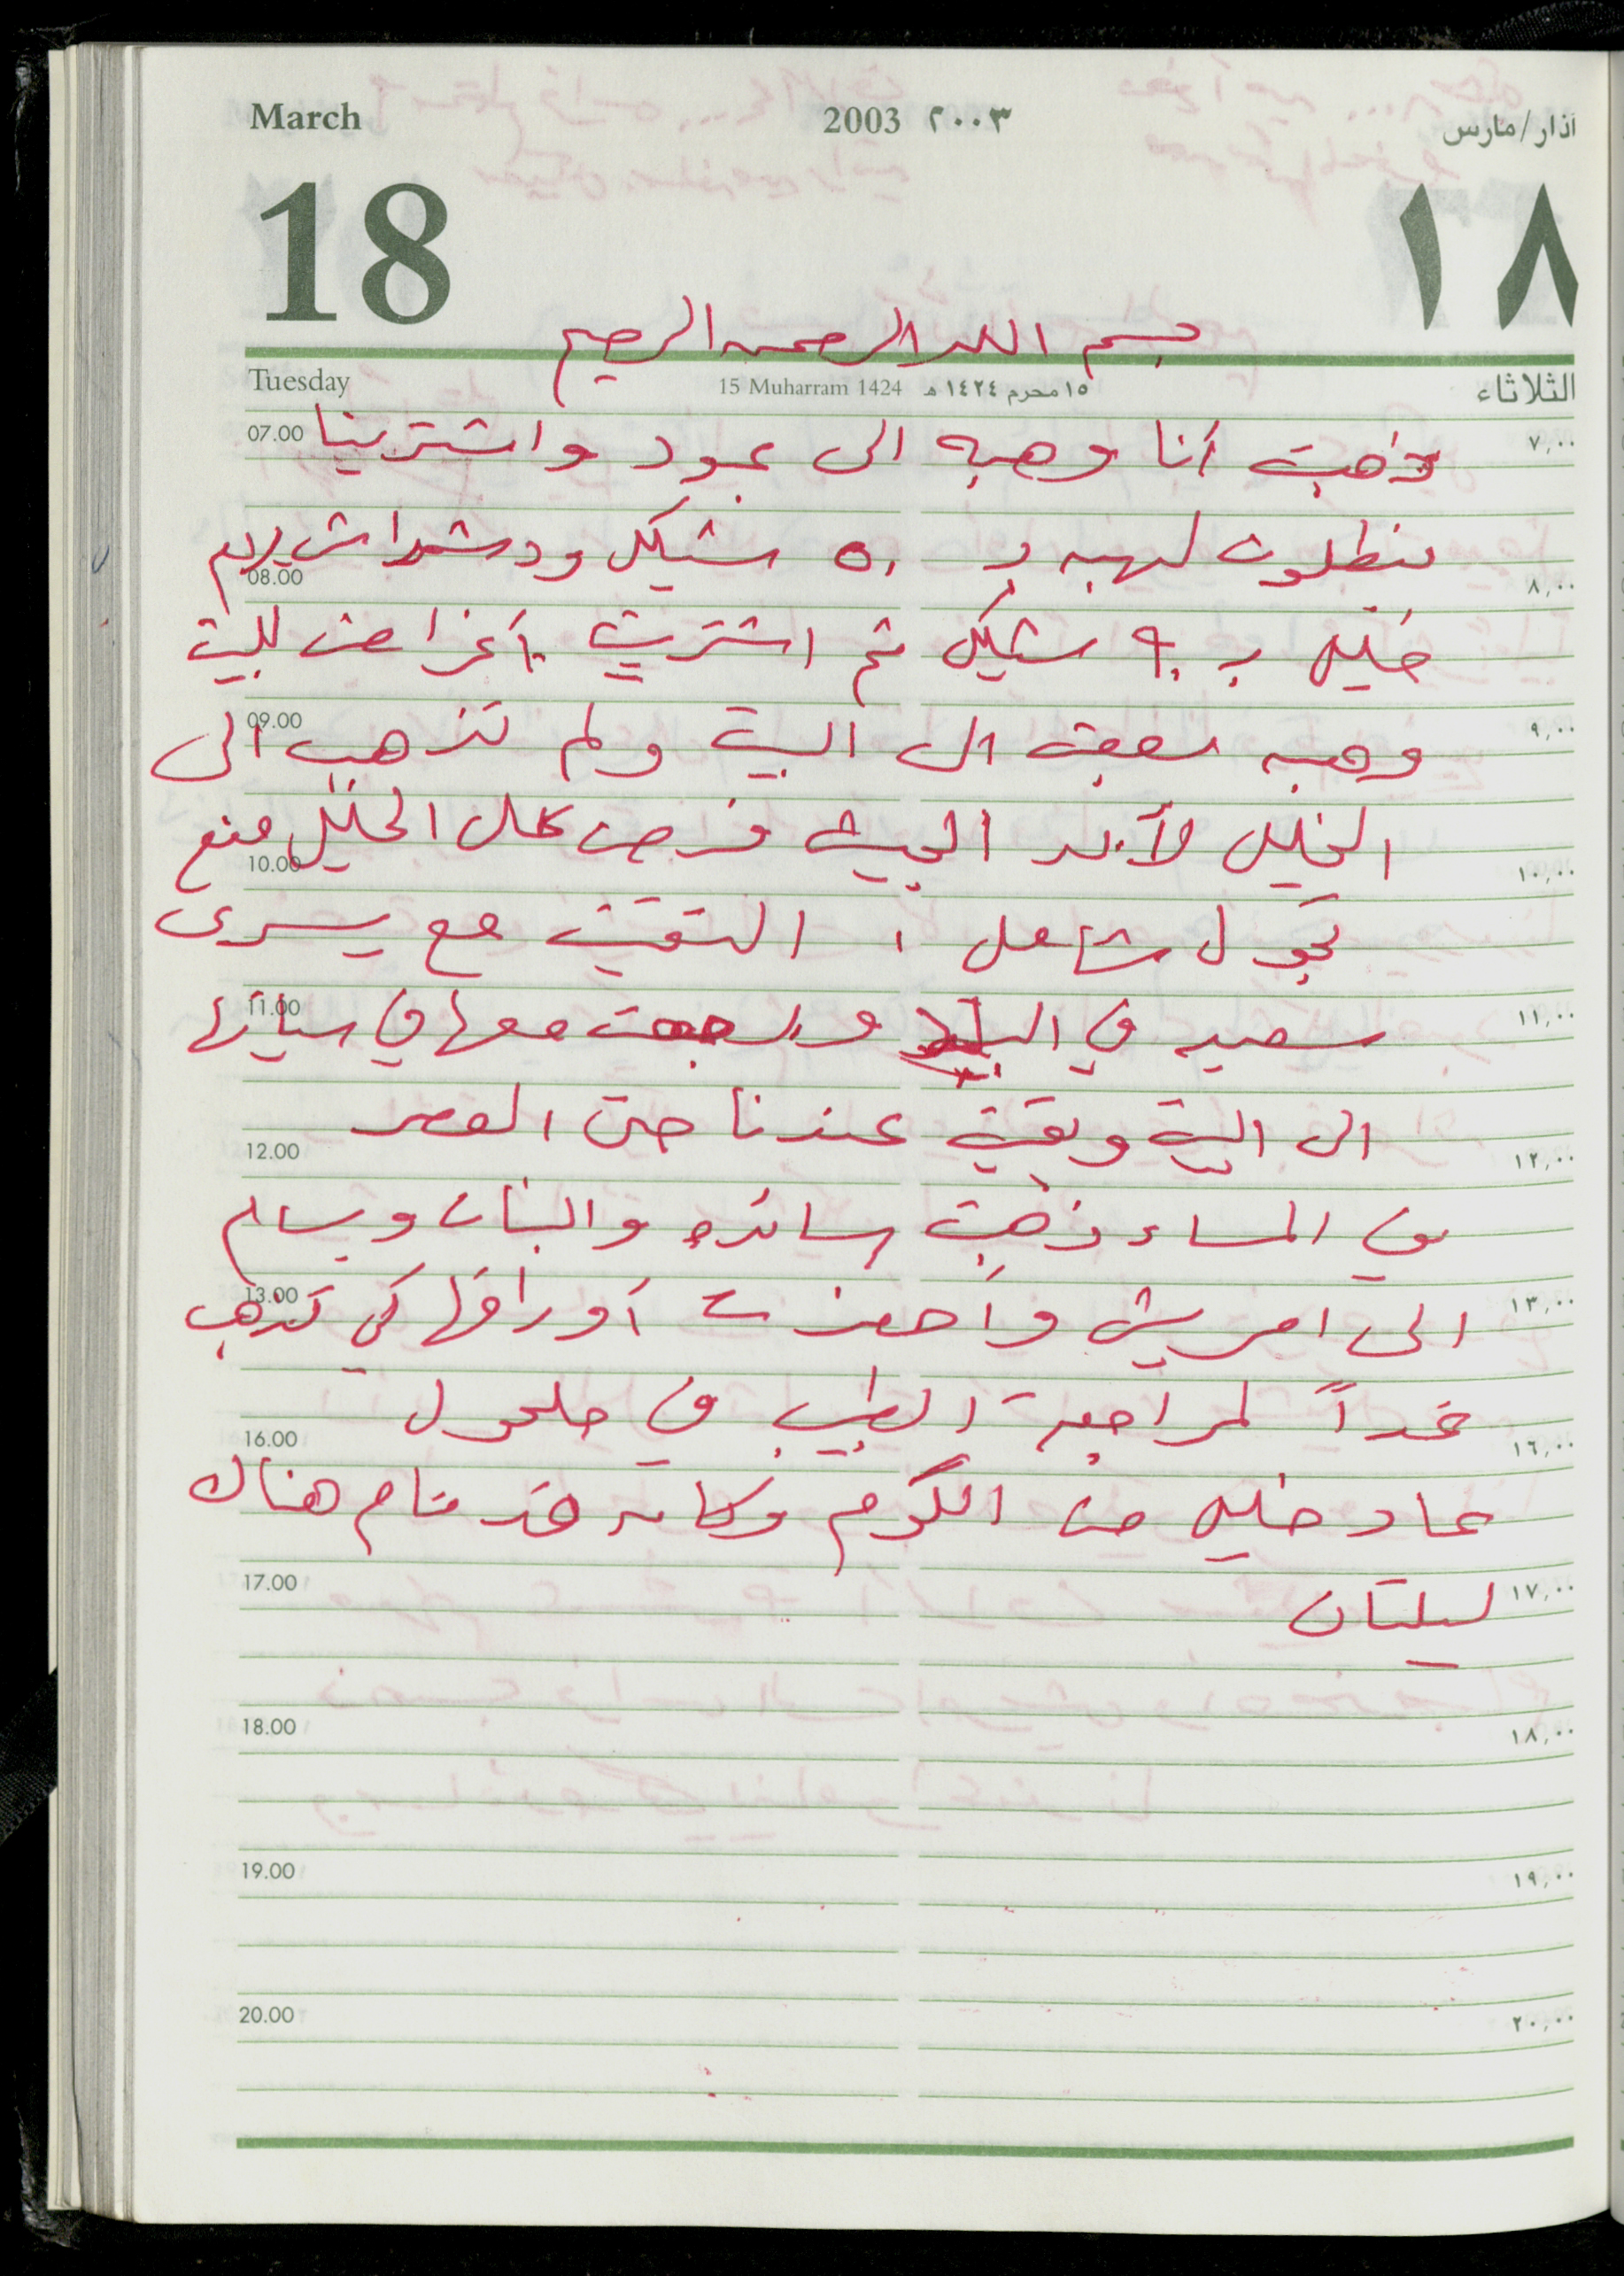 March 2003 ٢٠٠٣ آذار/مارس
18 ١٨
بسم الله الرحمن الرحيم
Tuesday 15 Muharram 1424 ١٥ محرم ١٤٢٤ هـ الثلاثاء
07.00 ذهبت أنا وهبه الى عبود واشترينا ٧,٠٠
بنطلون لهبه بـ ٥٠ شيكل و
08.00 ٨,٠٠
خليل بـ ٩٠ شيكل ثم اشتريت أغراض للبيت
09.00 ٩,٠٠
وهبه رجعت الى البيت ولم تذهب الى
الخليل لأن الجيش فرض على الخليل منع
10.00 ١٠,٠٠
تجول شامل ، التقيت مع يسرى
11.00 ١١,٠٠
سعيد في البلد ورجعت معها في سيارتها
الى البيت وبقيت عندنا حتى العصر
12.00 ١٢,٠٠
في المساء ذهبت رسائده والبنات وبسام
13.00 ١٣,٠٠
الى امريش وأحضرت أوراقها كي تذهب
غداً لمراجعة الطبيب في حلحول
16.00 ١٦,٠٠
عاد خليل من الكرم وكان قد نام هناك
17.00 ١٧,٠٠
ليلتان
18.00 ١٨,٠٠
19.00 ١٩,٠٠
20.00 ٢٠,٠٠